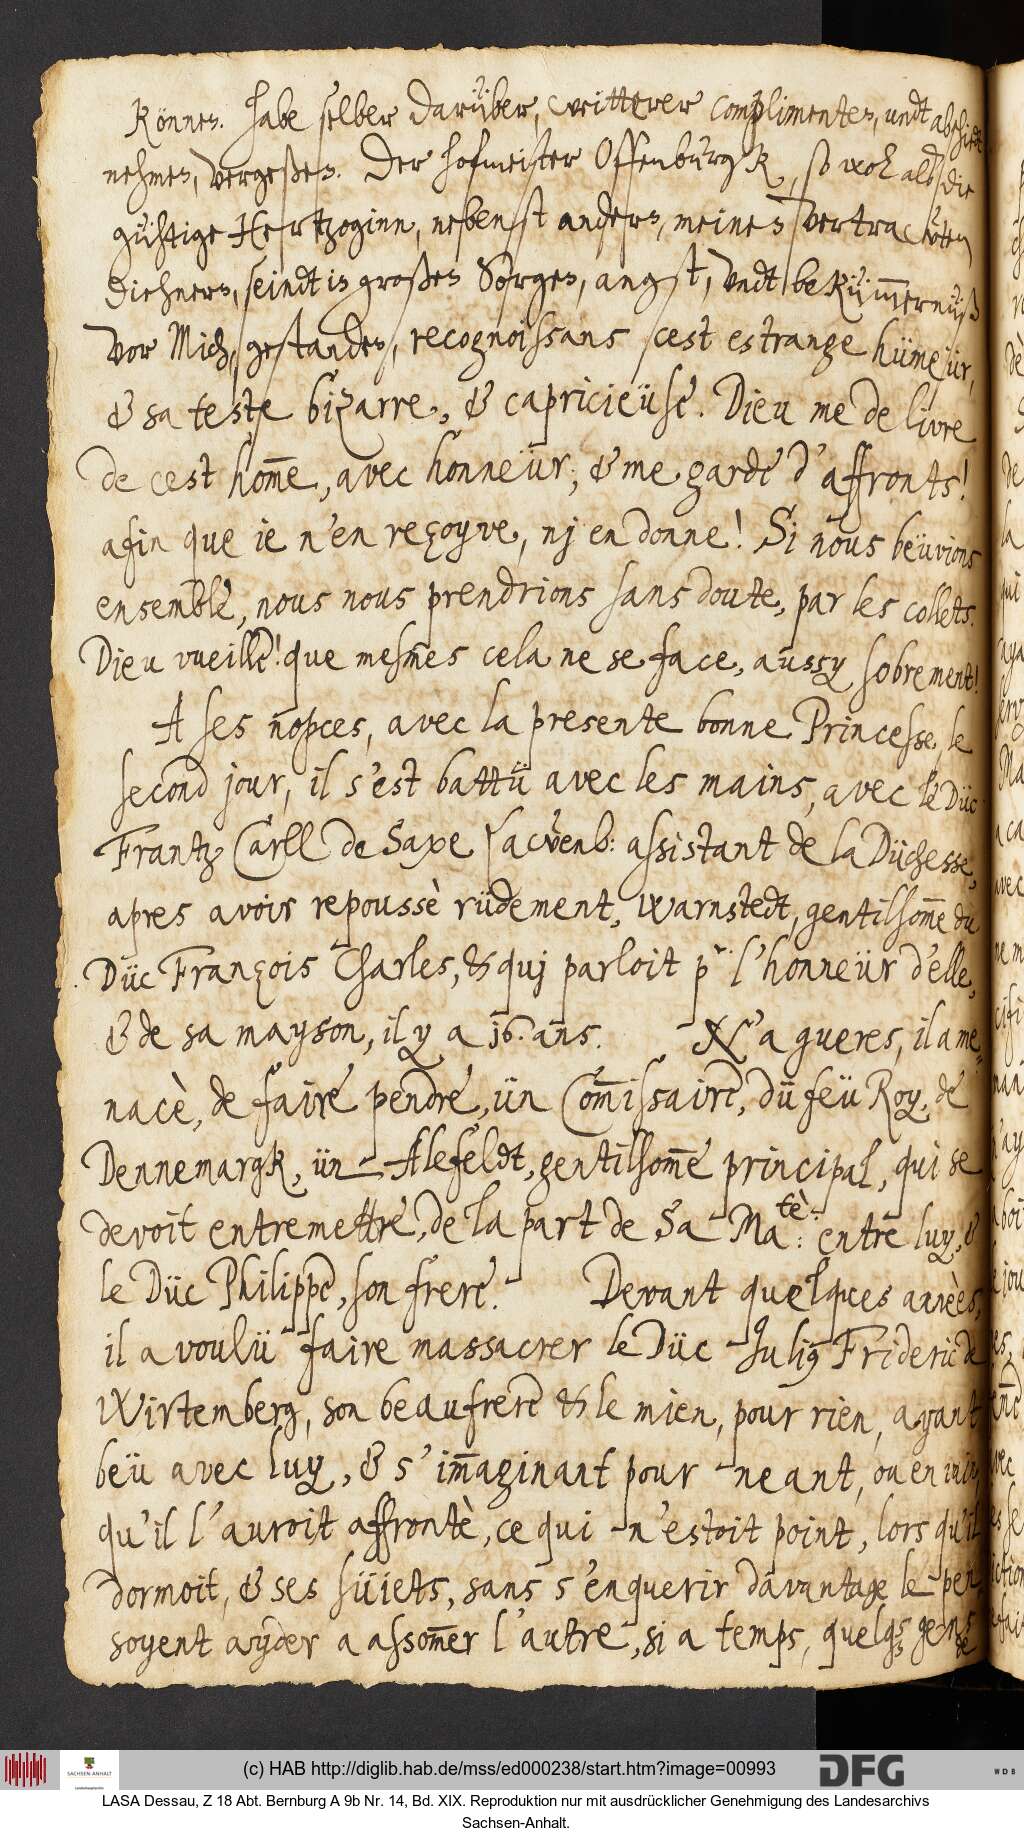 Können. habe selber darüber, weitterer complimenten, undt abschiedt
nehmen, vergeßen. Der hofmeister Offenburgk, so wol alß die
gühtige Hertzoginn, nebenst andern, meinen vertrawten
diehnern, seindt in großen Sorgen, angst, undt bekümmernüß
vor Mich, gestanden, recognoissans cest estrange hümeür,
& sa teste bizarre, & capricieüse. Dieu me delivre
de cest hom̅e, avec honneür, & me garde d'affronts!
afin que ie n'en reçoyve, nj en donne! Si nous beüvions
ensemble, nous nous prendrions sans doute, par les collets.
Dieu vueille! que mesmes cela ne se face, aussy sobrement!
A ses nopces, avec la presente bonne Princesse, le
second jour, il s'est battü avec les mains, avec le Düc
Frantz Carll de Saxe Lawenb: assistant de la Düchesse,
apres avoir repoussè rüdement, Warnstedt, gentilhom̅e du
Düc François Charles, & quj parloit pr l'honneür d'elle,
& de sa mayson, il y a 16. ans. N'a gueres, il a me⸗
nacè, de faire pendre, ün Com̅issaire, dü feü Roy, de
Dennemargk, ün Alefeldt, gentilhom̅e principal, qui se
devoit entremettre, de la part de Sa Matè: entre luy, &
le Düc Philippe, son frere. Devant quelques annèes,
il a voulü faire massacrer le Düc Julius Frideric de
Wirtemberg, son beaufrere & le mien, pour rien, ayant
beü avec luy, & s'im̅aginant pour neant, ou en vain,
qu'il l'auroit affrontè, ce qui n'estoit point, lors qu'il
dormoit, & ses süiets, sans s'enquerir davantage le pen⸗
soyent ayder a assom̅er l'autre, si a temps, quelqs gens
de
(c) HAB http://diglib.hab.de/mss/ed000238/start.htm?image=00993
SACHSEN-ANHALT
DFG
WDB
LASA Dessau, Z 18 Abt. Bernburg A 9b Nr. 14, Bd. XIX. Reproduktion nur mit ausdrücklicher Genehmigung des Landesarchivs
Sachsen-Anhalt.